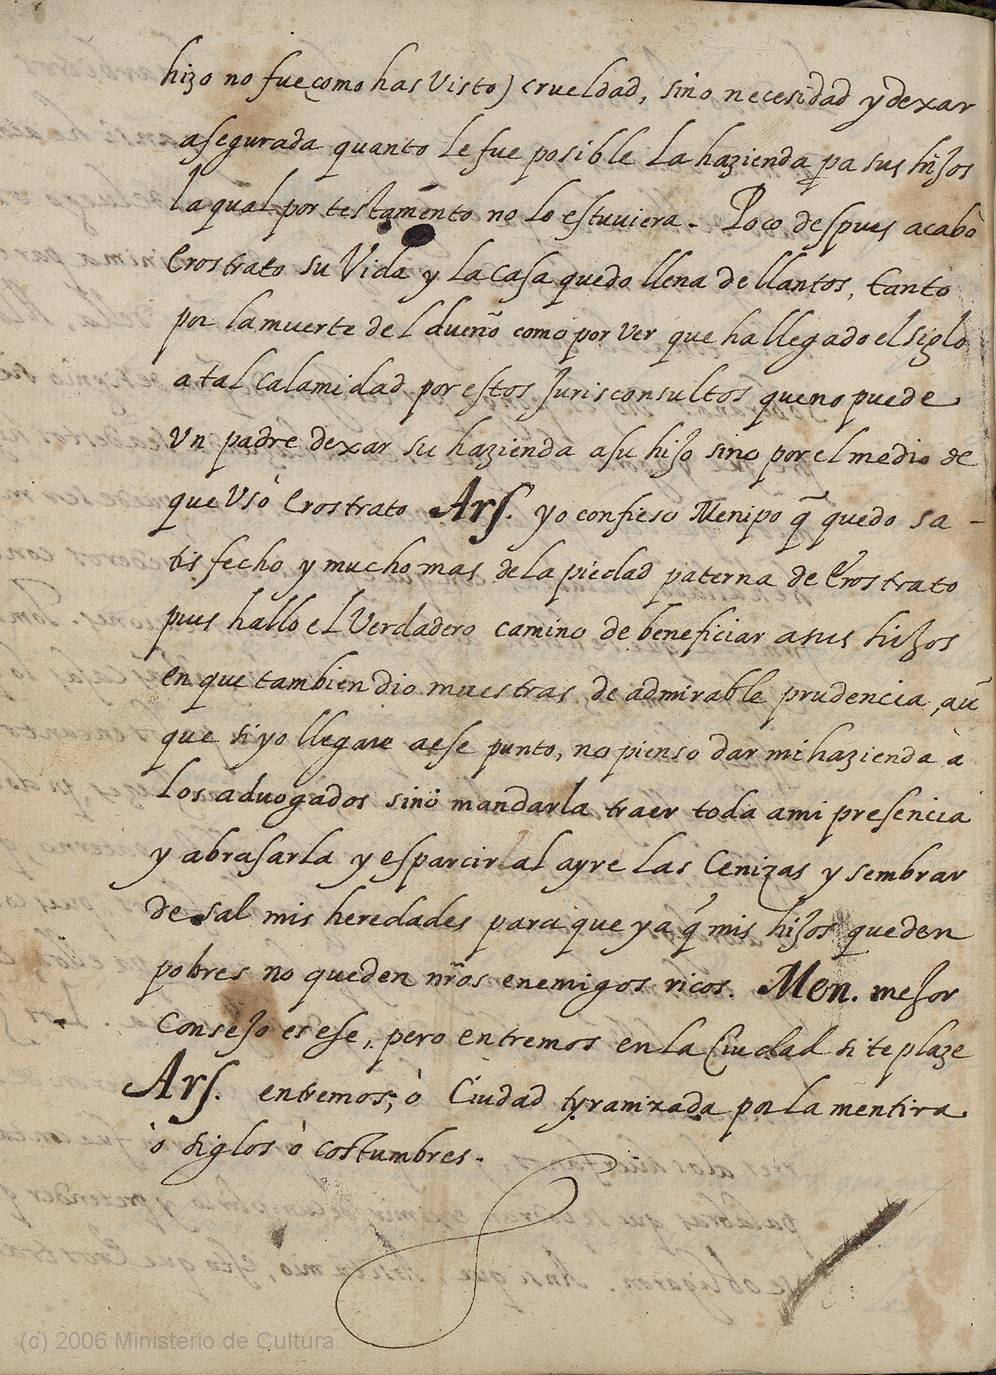 hizo no fue (como has Visto) crueldad, sino necesidad y dexar
asegurada quanto le fue posible la hazienda pa sus hijos
la qual por testamento no lo estuviera. Poco despues acabò
Erostrato su Vida y la casa quedo llena de llantos, tanto
por la muerte del dueño como por Ver que ha llegado el siglo
a tal calamidad por estos Jurisconsultos que no puede
Un padre dexar su hazienda a su hijo sino por el medio de
que Usò Erostrato Ars. yo confieso Menipo q̃ quedo sa-
tisfecho y mucho mas de la piedad paterna de Erostrato
pues hallo el Verdadero camino de beneficiar a sus hijos
en que tambien dio muestras de admirable prudencia, aũ
que si yo llegare a ese punto, no pienso dar mi hazienda à
los advogados sino mandarla traer toda a mi presencia
y abrasarla y esparcir al ayre las Cenizas y sembrar
de sal mis heredades para que ya q̃ mis hijos queden
pobres no queden nr̃os enemigos ricos. Men. mejor
Consejo es ese, pero entremos en la Ciudad si te plaze
Ars. entremos; ò Ciudad tyranizada por la mentira
ò siglos ò costumbres.
(c) 2006 Ministerio de Cultura